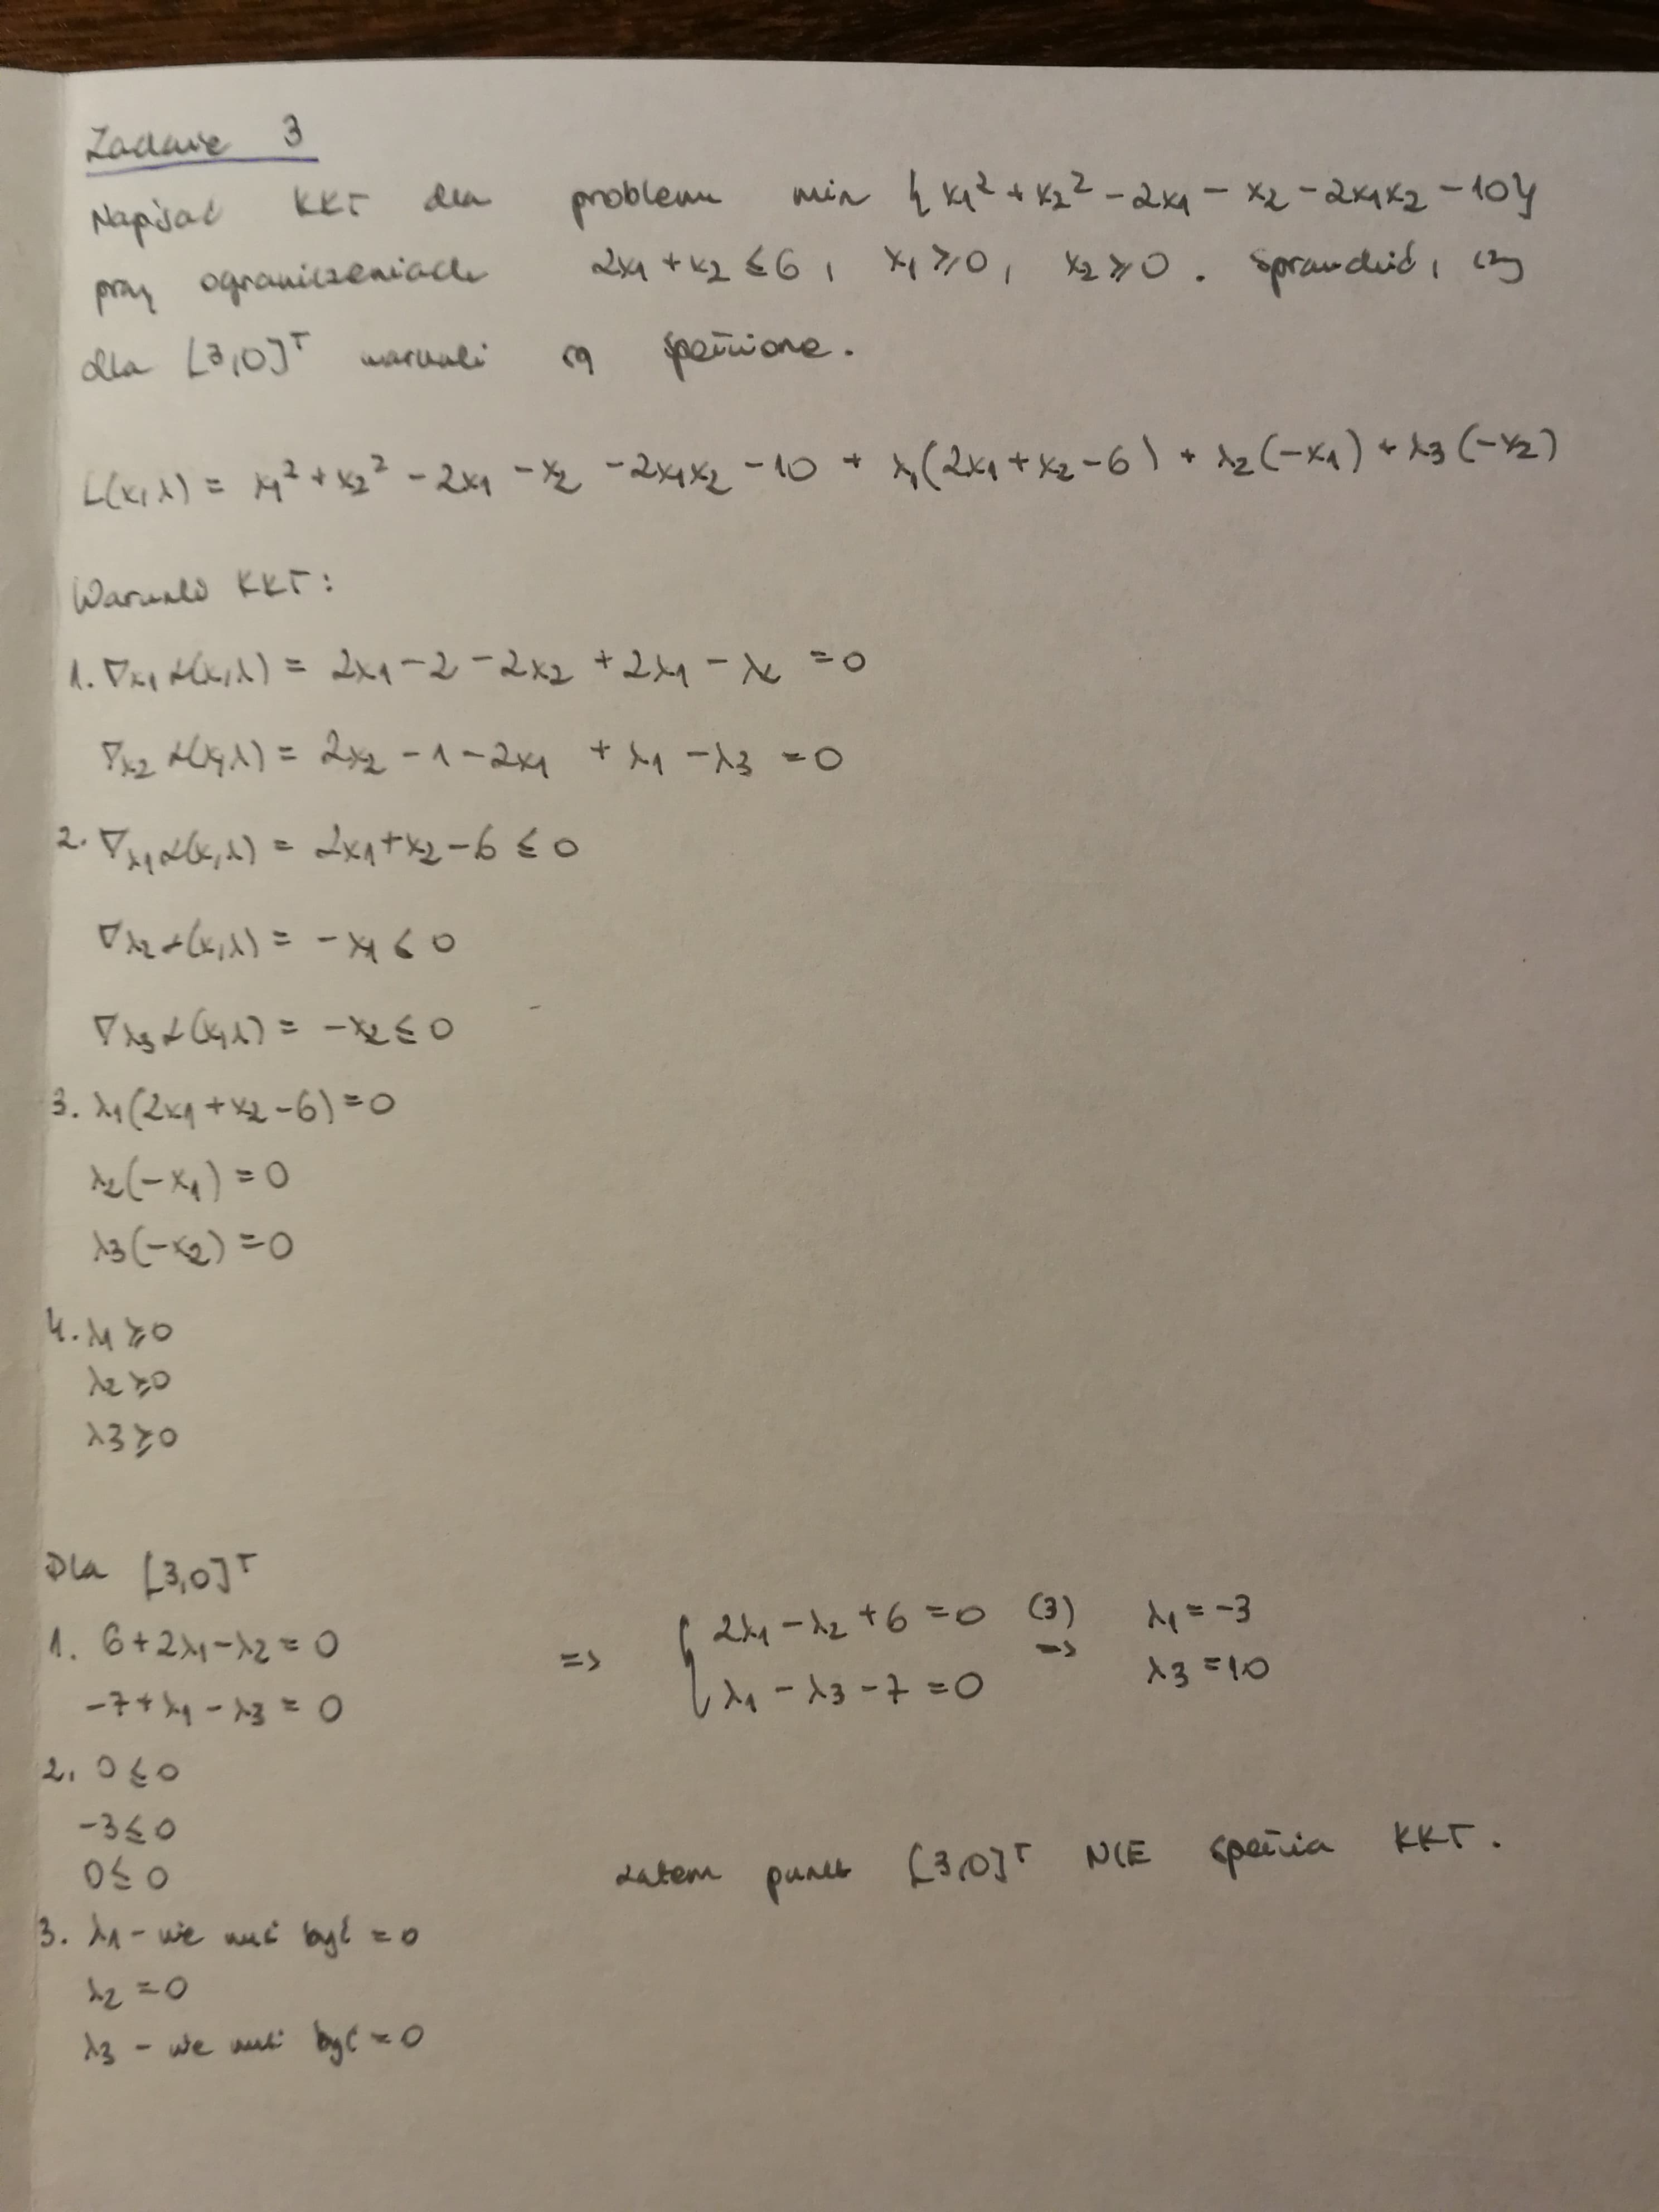 Zadanie 3
Napisać KKT dla problemu min {x₁² + x₂² - 2x₁ - x₂ - 2x₁x₂ - 10}
przy ograniczeniach 2x₁ + x₂ ≤ 6, x₁ ≥ 0, x₂ ≥ 0. Sprawdzić, czy
dla [3,0]ᵀ warunki są spełnione.
L(x,λ) = x₁² + x₂² - 2x₁ - x₂ - 2x₁x₂ - 10 + λ₁(2x₁ + x₂ - 6) + λ₂(-x₁) + λ₃(-x₂)
Warunki KKT:
1. ∇x₁ L(x,λ) = 2x₁ - 2 - 2x₂ + 2λ₁ - λ₂ = 0
∇x₂ L(x,λ) = 2x₂ - 1 - 2x₁ + λ₁ - λ₃ = 0
2. ∇λ₁ L(x,λ) = 2x₁ + x₂ - 6 ≤ 0
∇λ₂ L(x,λ) = -x₁ ≤ 0
∇λ₃ L(x,λ) = -x₂ ≤ 0
3. λ₁(2x₁ + x₂ - 6) = 0
λ₂(-x₁) = 0
λ₃(-x₂) = 0
4. λ₁ ≥ 0
λ₂ ≥ 0
λ₃ ≥ 0
Dla [3,0]ᵀ
1. 6 + 2λ₁ - λ₂ = 0
-7 + λ₁ - λ₃ = 0
=> { 2λ₁ - λ₂ + 6 = 0 (3) => λ₁ = -3
λ₁ - λ₃ - 7 = 0 λ₃ = 10
2. 0 ≤ 0
-3 ≤ 0
0 ≤ 0
zatem punkt [3,0]ᵀ NIE spełnia KKT.
3. λ₁ - nie musi być = 0
λ₂ = 0
λ₃ - nie musi być = 0